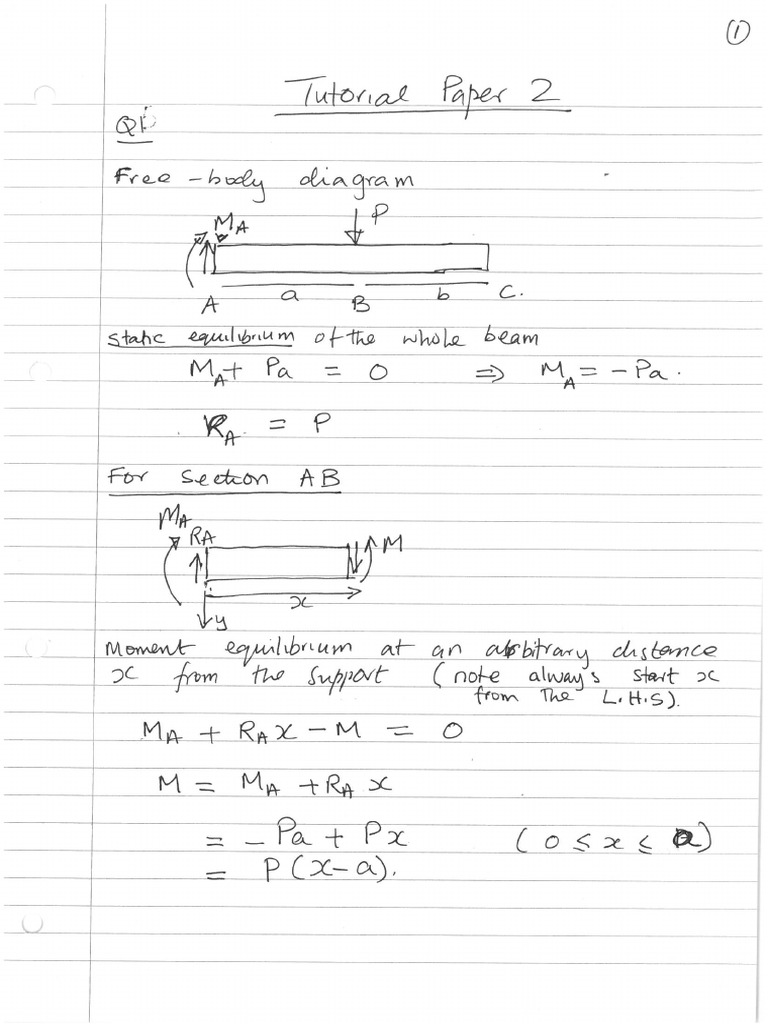 ①
Tutorial Paper 2
Q1
Free-body diagram
P
MA
A a B b C.
Static equilibrium of the whole beam
MA + Pa = 0 ⇒ MA = -Pa.
RA = P
For Section AB
MA
RA
M
x
y
Moment equilibrium at an arbitrary distance
x from the support (note always start x
from The L.H.S).
MA + RA x - M = 0
M = MA + RA x
= -Pa + Px (0 ≤ x ≤ a)
= P(x-a).